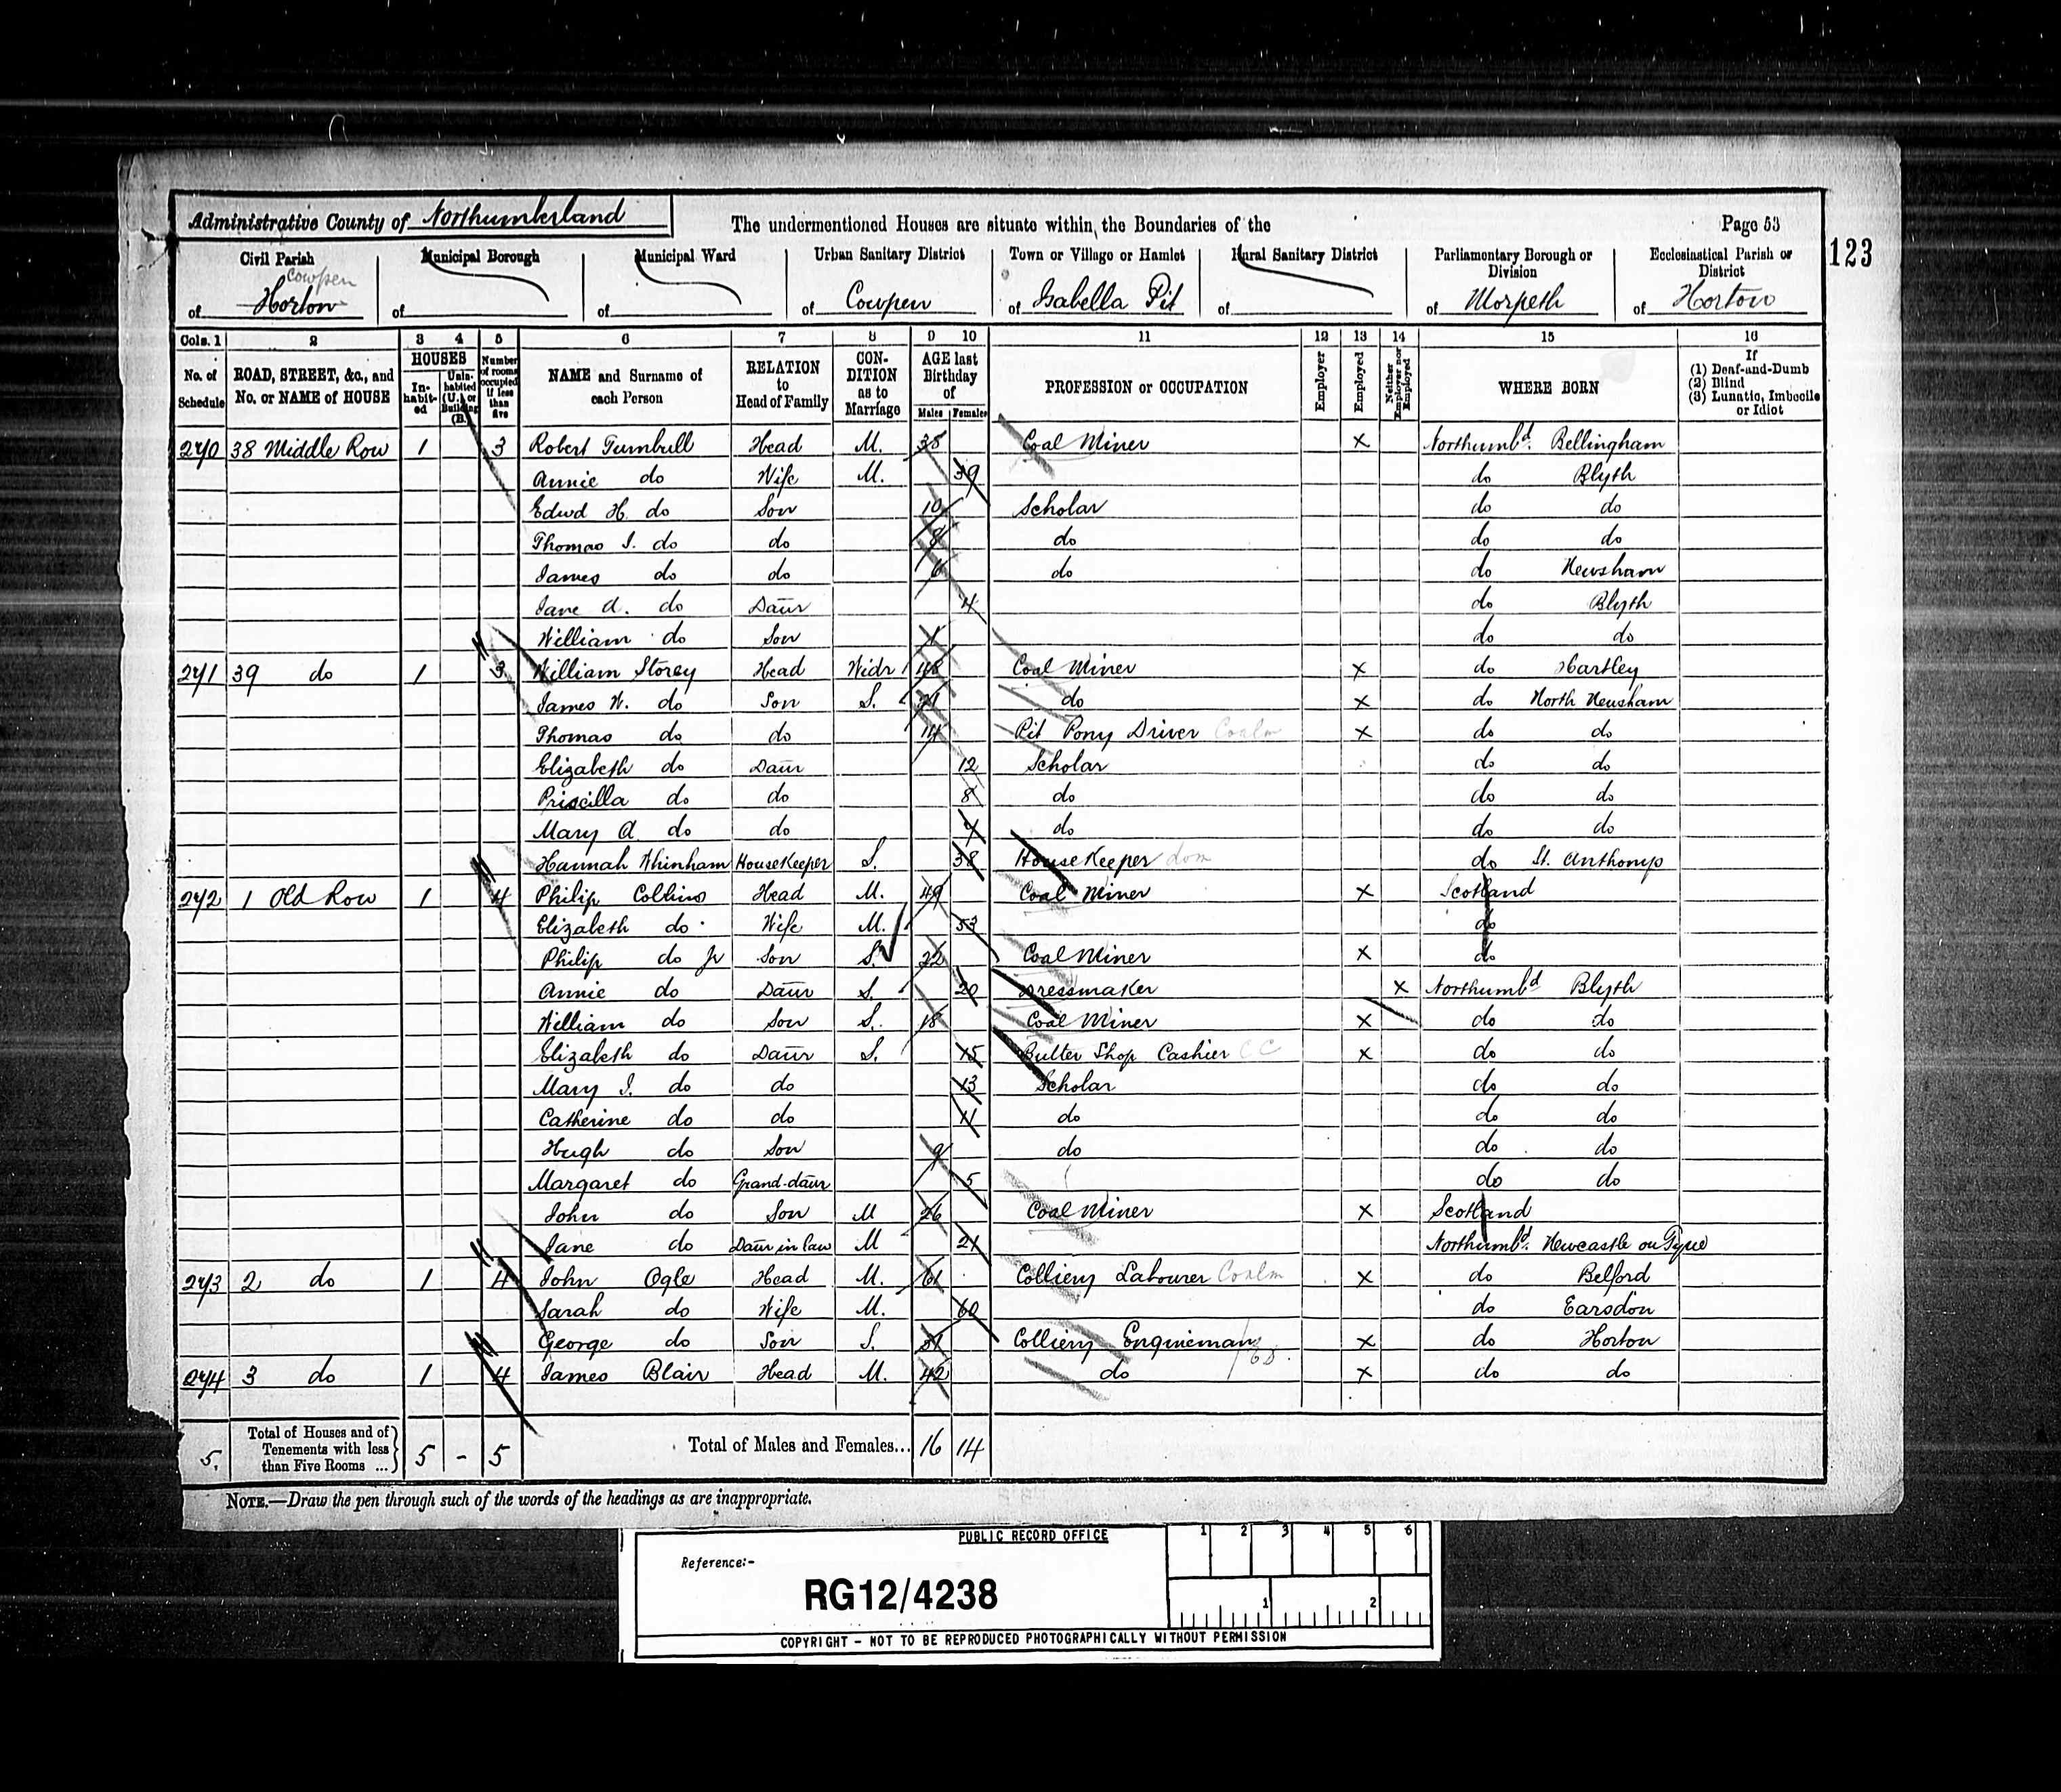 Administrative County of Northumberland The undermentioned Houses are situate within the Boundaries of the Page 53
123
Civil Parish Municipal Borough Municipal Ward Urban Sanitary District Town or Village or Hamlet Rural Sanitary District Parliamentary Borough or Division Ecclesiastical Parish or District
Cowpen
of Horton of of of Cowpen of Isabella Pit of of Morpeth of Horton
Cols. 1 2 3 4 5 6 7 8 9 10 11 12 13 14 15 16
No. of Schedule ROAD, STREET, &c., and No. or NAME of HOUSE HOUSES In-habit-ed Unin-habited (U.) or Building (B.) Number of rooms occupied if less than five NAME and Surname of each Person RELATION to Head of Family CON-DITION as to Marriage AGE last Birthday of Males Females PROFESSION or OCCUPATION Employer Employed Neither Employer nor Employed WHERE BORN If (1) Deaf-and-Dumb (2) Blind (3) Lunatic, Imbecile or Idiot
240 38 Middle Row 1 3 Robert Turnbull Head M. 38 Coal Miner X Northumbd. Bellingham
Annie do Wife M. 39 do Blyth
Edwd H. do Son 10 Scholar do do
Thomas I. do do 8 do do do
James do do 6 do do Newsham
Jane A. do Daur 4 do Blyth
William do Son 1 do do
241 39 do 1 3 William Storey Head Widr 48 Coal Miner X do Hartley
James W. do Son S. 21 do X do North Newsham
Thomas do do 14 Pit Pony Driver Coalm X do do
Elizabeth do Daur 12 Scholar do do
Priscilla do do 8 do do do
Mary A. do do do do do
Hannah Whinham HouseKeeper S. 38 HouseKeeper dom do St. Anthonys
242 1 Old Row 1 4 Philip Collins Head M. 49 Coal Miner X Scotland
Elizabeth do Wife M. 53 do
Philip do Jr Son S. 22 Coal Miner X do
Annie do Daur S. 20 Dressmaker X Northumbd Blyth
William do Son S. 18 Coal Miner X do do
Elizabeth do Daur S. 15 Butter Shop Cashier CC X do do
Mary I. do do 13 Scholar do do
Catherine do do 11 do do do
Hugh do Son 9 do do do
Margaret do Grand-daur 5 do do
John do Son M 26 Coal Miner X Scotland
Jane do Daur in law M 21 Northumbd. Newcastle on Tyne
243 2 do 1 4 John Ogle Head M. 61 Colliery Labourer Coalm X do Belford
Sarah do Wife M. 60 do Earsdon
George do Son S. 31 Colliery Engineman X do Horton
244 3 do 1 4 James Blair Head M. 42 do X do do
5. Total of Houses and of Tenements with less than Five Rooms ... 5 - 5 Total of Males and Females... 16 14
NOTE.—Draw the pen through such of the words of the headings as are inappropriate.
PUBLIC RECORD OFFICE
1 2 3 4 5 6
Reference:-
RG12/4238
1 2
COPYRIGHT - NOT TO BE REPRODUCED PHOTOGRAPHICALLY WITHOUT PERMISSION